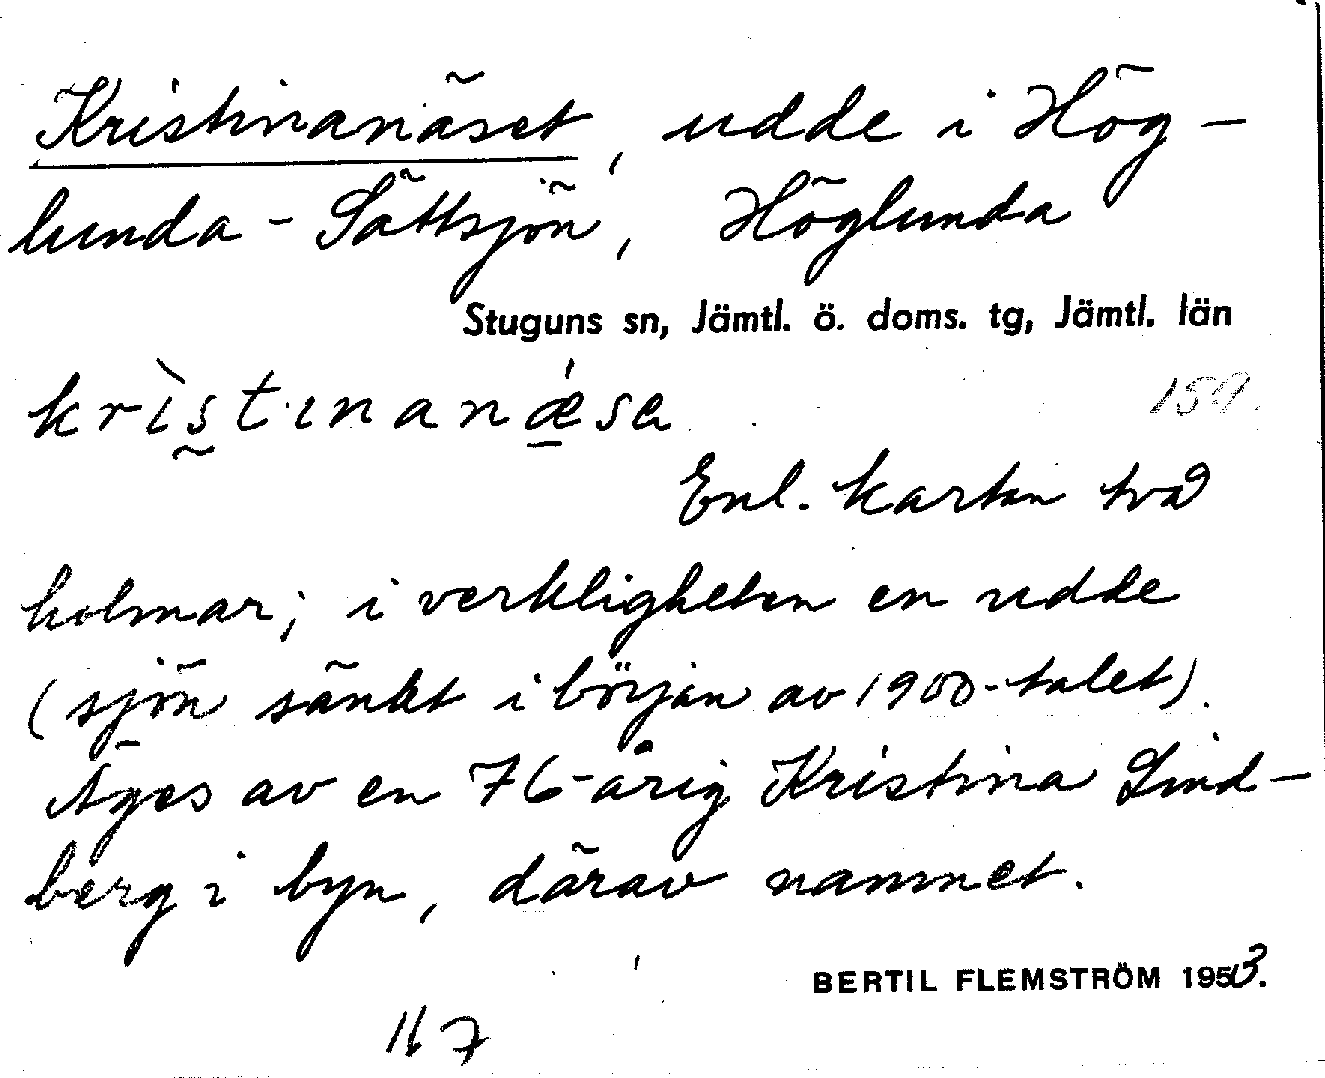 Kristinanäset, udde i Hög-
lunda-Sättsjön, Höglunda
Stuguns sn, Jämtl. ö. doms. tg, Jämtl. län
krìs̰tınanǽ̱sa
159.
Enl. kartan två
holmar; i verkligheten en udde
(sjön sänkt i början av 1900-talet).
Äges av en 76-årig Kristina Lind-
berg i byn, därav namnet.
BERTIL FLEMSTRÖM 1953.
167